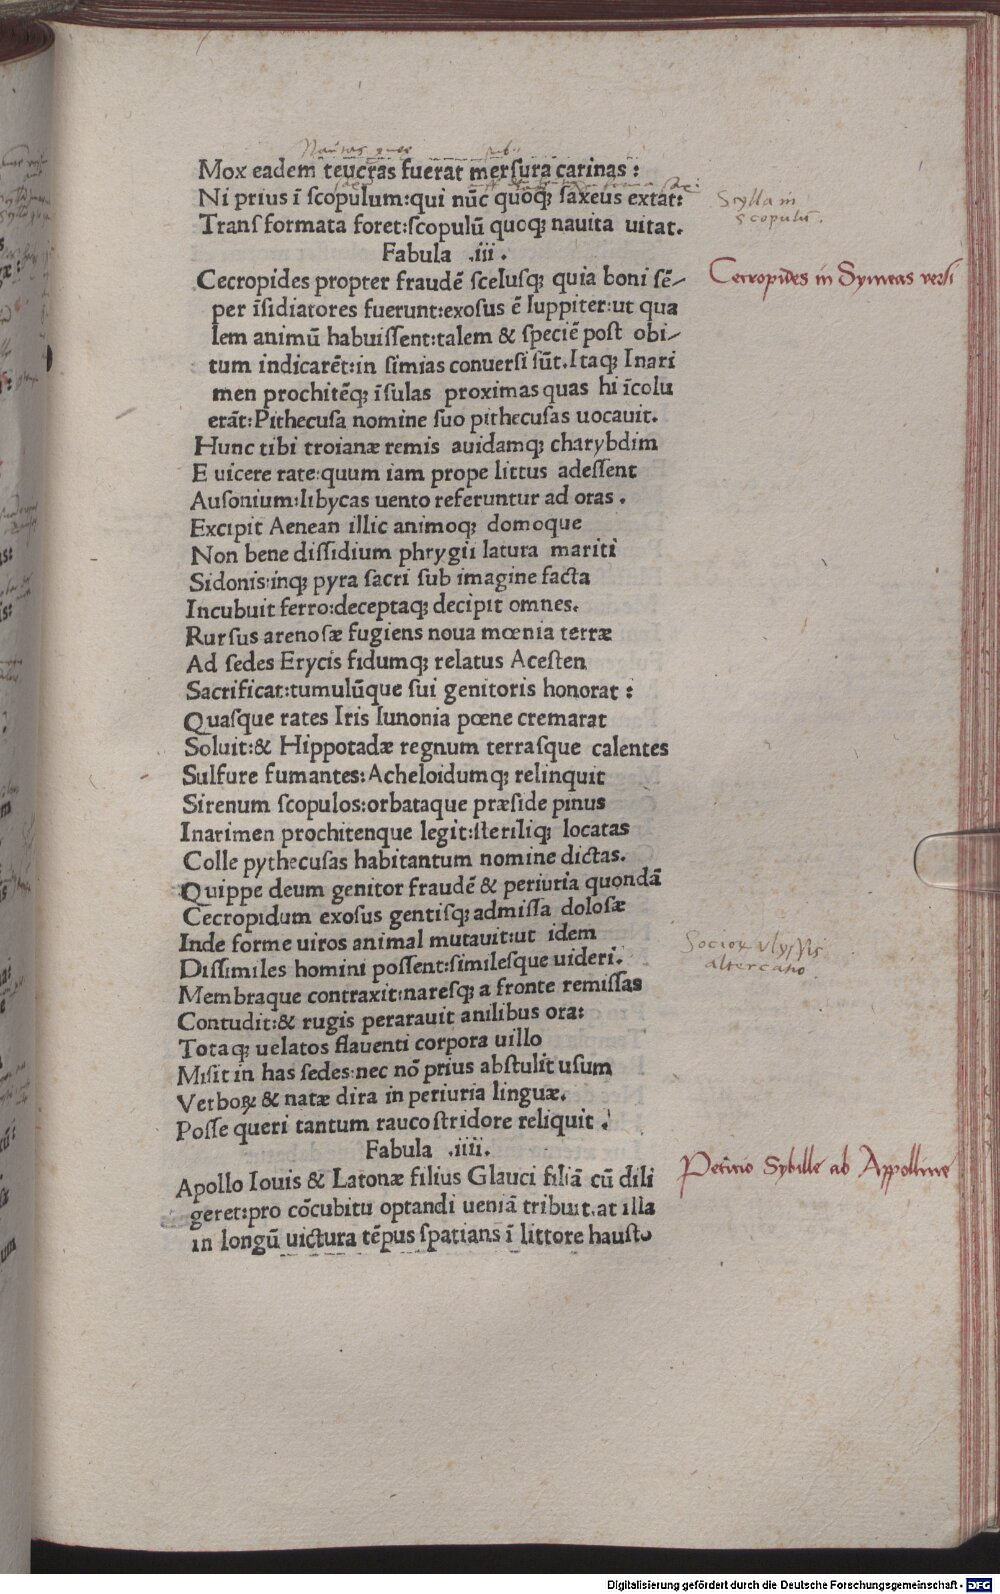 Mox eadem teucras fuerat mersura carinas:
Ni prius ī scopulum:qui nūc quoqꝫ saxeus extat:
Scylla in
scopulū.
Transformata foret:scopulū quoqꝫ nauita uitat.
Fabula .iii.
Cecropides in Symeas versi
Cecropides propter fraudē scelusqꝫ quia boni sē-
per īsidiatores fuerunt:exosus ē Iuppiter:ut qua
lem animū habuissent:talem & speciē post obi-
tum indicarēt:in simias conuersi sūt.Itaqꝫ Inari
men prochitēqꝫ īsulas proximas quas hi īcolu
erāt:Pithecusa nomine suo pithecusas uocauit.
Hunc tibi troianæ remis auidamqꝫ charybdim
E uicere rate:quum iam prope littus adessent
Ausonium:libycas uento referuntur ad oras.
Excipit Aenean illic animoqꝫ domoque
Non bene dissidium phrygii latura mariti
Sidonis:inqꝫ pyra sacri sub imagine facta
Incubuit ferro:deceptaqꝫ decipit omnes.
Rursus arenosæ fugiens noua mœnia terræ
Ad sedes Erycis fidumqꝫ relatus Acesten
Sacrificat:tumulūque sui genitoris honorat:
Quasque rates Iris Iunonia pœne cremarat
Soluit:& Hippotadæ regnum terrasque calentes
Sulfure fumantes:Acheloidumqꝫ relinquit
Sirenum scopulos:orbataque præside pinus
Inarimen prochitenque legit:steriliqꝫ locatas
Colle pythecusas habitantum nomine dictas.
Quippe deum genitor fraudē & periuria quondā
Cecropidum exosus gentisqꝫ admissa dolosæ
Inde forme uiros animal mutauit:ut idem
Socioꝝ vlyssis
altercatio.
Dissimiles homini possent:similesque uideri.
Membraque contraxit:naresqꝫ a fronte remissas
Contudit:& rugis perarauit anilibus ora:
Totaqꝫ uelatos flauenti corpora uillo
Misit in has sedes:nec nō prius abstulit usum
Verboꝝ & natæ dira in periuria linguæ.
Posse queri tantum rauco stridore reliquit.
Fabula .iiii.
Petitio Sybille ab Appolline
Apollo Iouis & Latonæ filius Glauci filiā cū dili
geret:pro cōcubitu optandi ueniā tribuit.at illa
in longū uictura tēpus spatians ī littore hausto
Digitalisierung gefördert durch die Deutsche Forschungsgemeinschaft - DFG